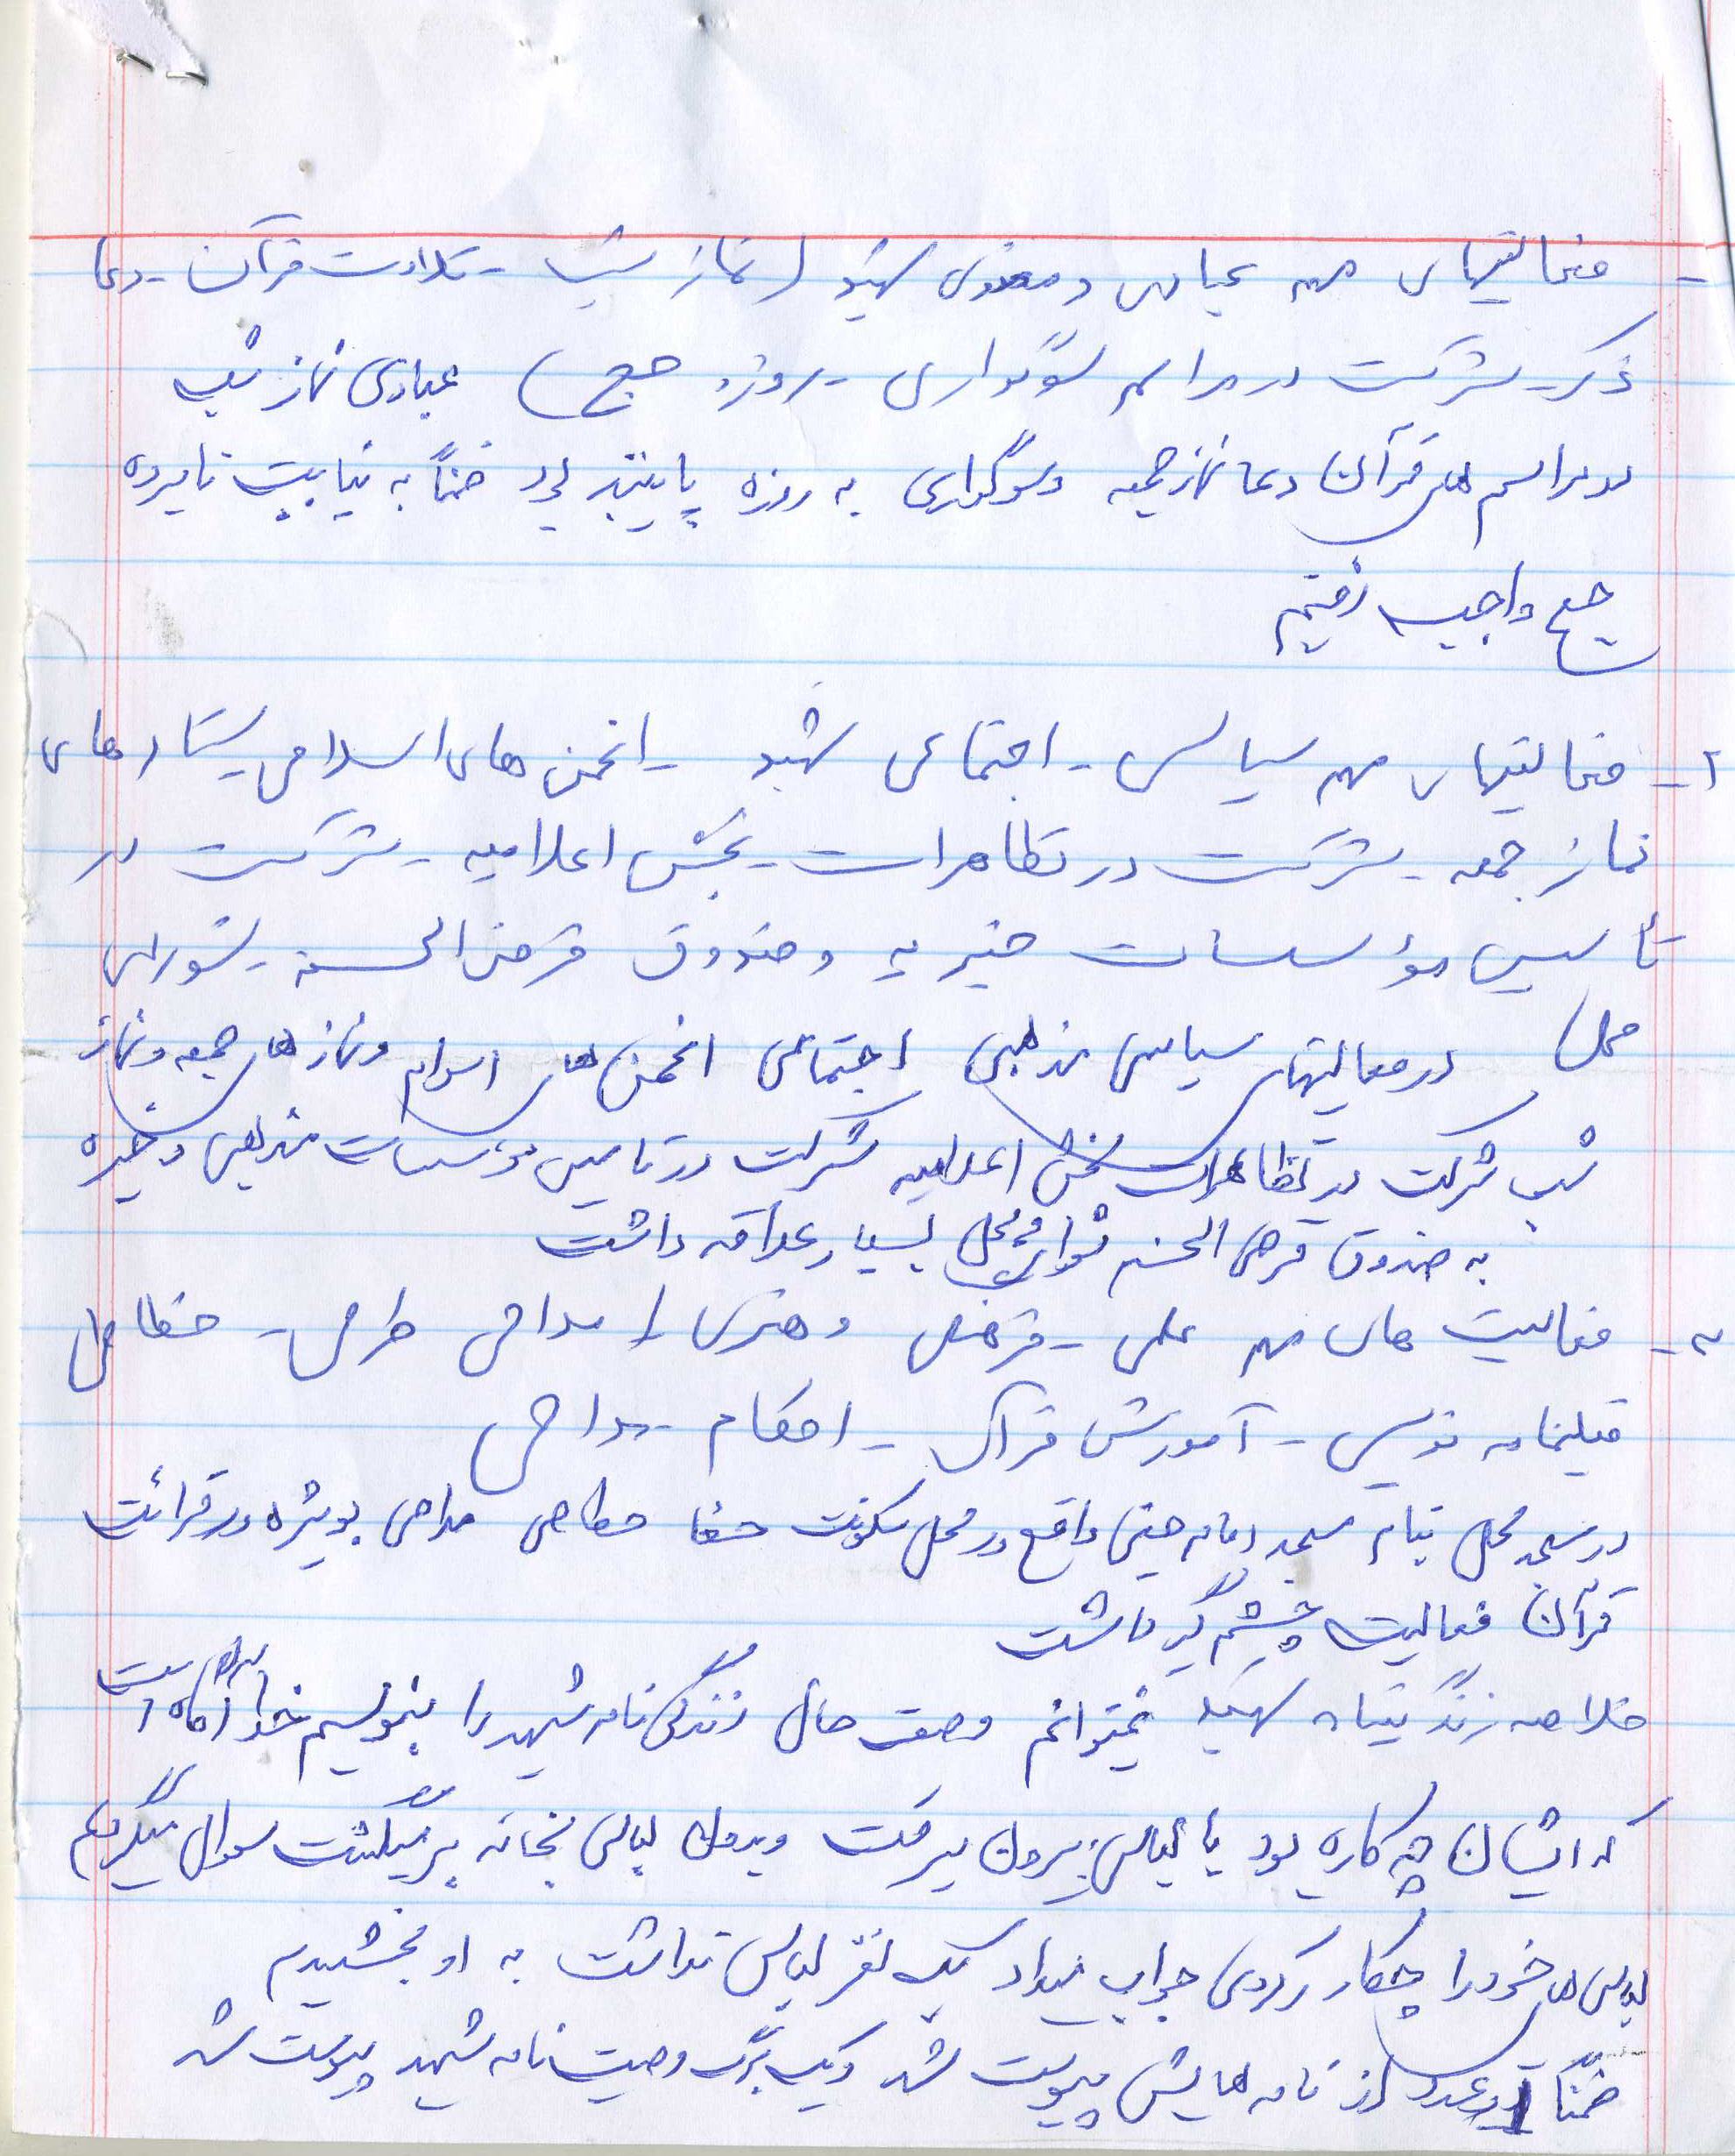 - فعالیتهای مهم عبادی و معنوی شهید (نماز شب - تلاوت قرآن - دعا
ذکر - شرکت در مراسم سوگواری - روزه حج) عبادی نماز شب
در مراسم های قرآن دعا نماز جمعه و سوگواری به روزه پایبند بود ضمناً به نیابت نامبرده
حج واجب رفتیم
۲- فعالیتهای مهم سیاسی - اجتماعی شهید - انجمن های اسلامی - ستادهای
نماز جمعه - شرکت در تظاهرات - پخش اعلامیه - شرکت در
تأسیس مؤسسات خیریه و صندوق قرض الحسنه - شورای
محل) در فعالیتهای سیاسی مذهبی اجتماعی انجمن های اسلام و نمازهای جمعه و نماز
شب شرکت در تظاهرات پخش اعلامیه شرکت در تاسیس مؤسسات مذهبی و خیره
به صندوق قرض الحسنه شورای محل بسیار علاقه داشت
۳- فعالیت های مهم علمی - فرهنگی و هنری (مداحی طراحی - خطاطی
فیلنامه نویسی - آموزش قرآن - احکام - مداحی
در مسجد محل بنام مسجد امام خمینی واقع در محل سکونت خطاطی مداحی بویژه در قرائت
قرآن فعالیت چشم گیر داشت
خلاصه زندگینامه شهید نمیتوانم وصف حال زندگی نامه شهید را بنویسم خدا آگاه است
که ایشان چه کاره بود با لباس بیرون میرفت و بدون لباس بخانه بر میگشت سوال میکردیم
لباس های خود را چکار کردی جواب میداد یک نفر لباس نداشت به او بخشیدم
ضمناً عدد از نامه هایش پیوست شد و یک برگ وصیت نامه شهید پیوست شد